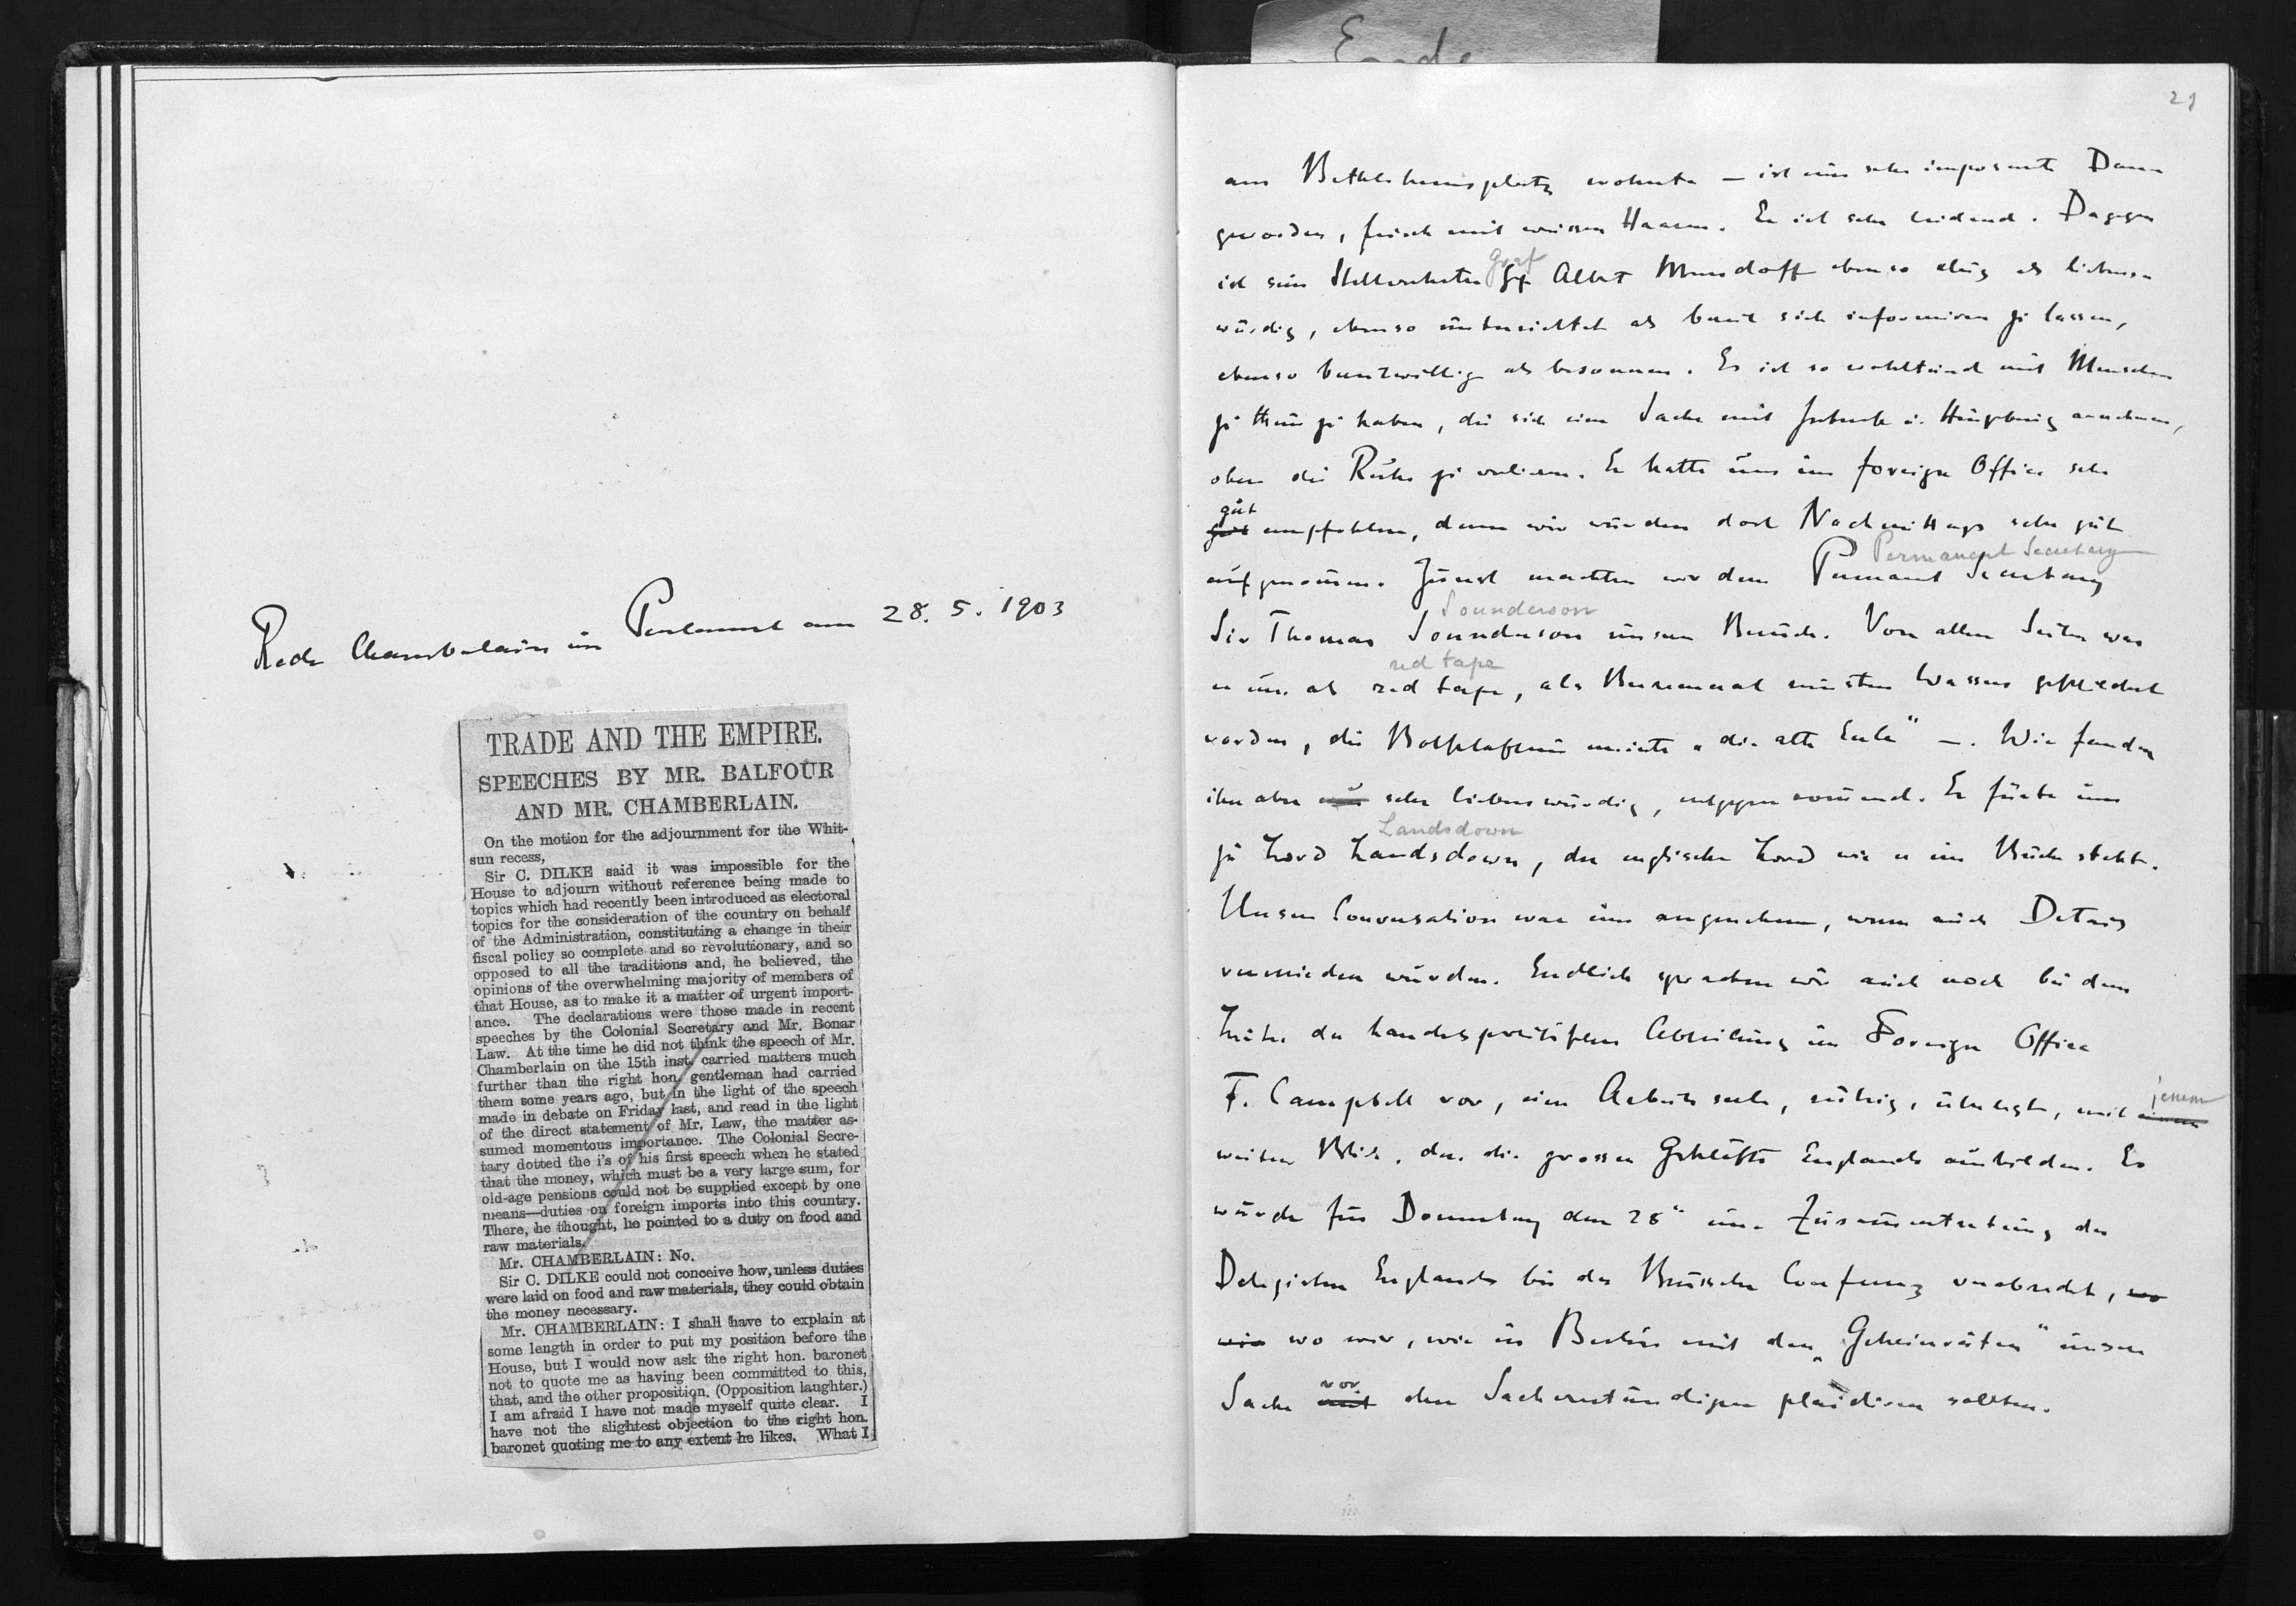 Rede Chamberlains im Parlament am 28. 5. 1903
TRADE AND THE EMPIRE.
SPEECHES BY MR. BALFOUR
AND MR. CHAMBERLAIN.
On the motion for the adjournment for the Whit-
sun recess,
Sir C. DILKE said it was impossible for the
House to adjourn without reference being made to
topics which had recently been introduced as electoral
topics for the consideration of the country on behalf
of the Administration, constituting a change in their
fiscal policy so complete and so revolutionary, and so
opposed to all the traditions and, he believed, the
opinions of the overwhelming majority of members of
that House, as to make it a matter of urgent import-
ance. The declarations were those made in recent
speeches by the Colonial Secretary and Mr. Bonar
Law. At the time he did not think the speech of Mr.
Chamberlain on the 15th inst. carried matters much
further than the right hon. gentleman had carried
them some years ago, but in the light of the speech
made in debate on Friday last, and read in the light
of the direct statement of Mr. Law, the matter as-
sumed momentous importance. The Colonial Secre-
tary dotted the i's of his first speech when he stated
that the money, which must be a very large sum, for
old-age pensions could not be supplied except by one
means—duties on foreign imports into this country.
There, he thought, he pointed to a duty on food and
raw materials.
Mr. CHAMBERLAIN: No.
Sir C. DILKE could not conceive how, unless duties
were laid on food and raw materials, they could obtain
the money necessary.
Mr. CHAMBERLAIN: I shall have to explain at
some length in order to put my position before the
House, but I would now ask the right hon. baronet
not to quote me as having been committed to this,
that, and the other proposition. (Opposition laughter.)
I am afraid I have not made myself quite clear. I
have not the slightest objection to the right hon.
baronet quoting me to any extent he likes. What I
Ende
21
am Bethlehemsplatz wohnte — ist eine sehr imposante Dame
geworden, frisch mit weissen Haaren. Er ist sehr leidend. Dagegen
Graf
ist sein Stellvertreter Gf Albert Mensdorff ebenso klug als liebens-
würdig, ebenso unterrichtet als bereit sich informiren zu lassen,
ebenso bereitwillig als besonnen. Es ist so wohltuend mit Menschen
zu thun zu haben, die sich einer Sache mit Interesse u. Hingebung annehmen,
ohne die Ruhe zu verlieren. Er hatte uns im foreign Office sehr
gut
gut empfohlen, denn wir wurden dort Nachmittags sehr gut
Permanent Secretary
aufgenommen. Zuerst machten wir dem Permanent Secretary
Sounderson
Sir Thomas Sounderson unseren Besuch. Von allen Seiten war
red tape
er uns als red tape, als Bureaucrat reinsten Wassers geschildert
worden, die Botschafterin meinte „die alte Eule" —. Wir fanden
ihn aber sehr liebenswürdig, entgegenkommend. Er führte uns
Landsdown
zu Lord Landsdown, der englische Lord wie er im Buche steht.
Unsere Conversation war eine angenehme, wenn auch Details
vermieden wurden. Endlich sprachen wir auch noch bei dem
Leiter der handelspolitischen Abteilung im Foreign Office
jenem
F. Campbell vor, ein Arbeiter, ruhig, überlegt, mit einem
weiten Blick, den die grossen Geschäfte Englands ausbilden. Es
wurde für Donnerstag den 28" eine Zusammentretung der
Delegirten Englands bei der Brüsseler Conferenz verabredet, wo
wir wo wir, wie in Berlin mit den „Geheimräten" unsere
vor
Sache mit den Sachverständigen plaidiren sollten.